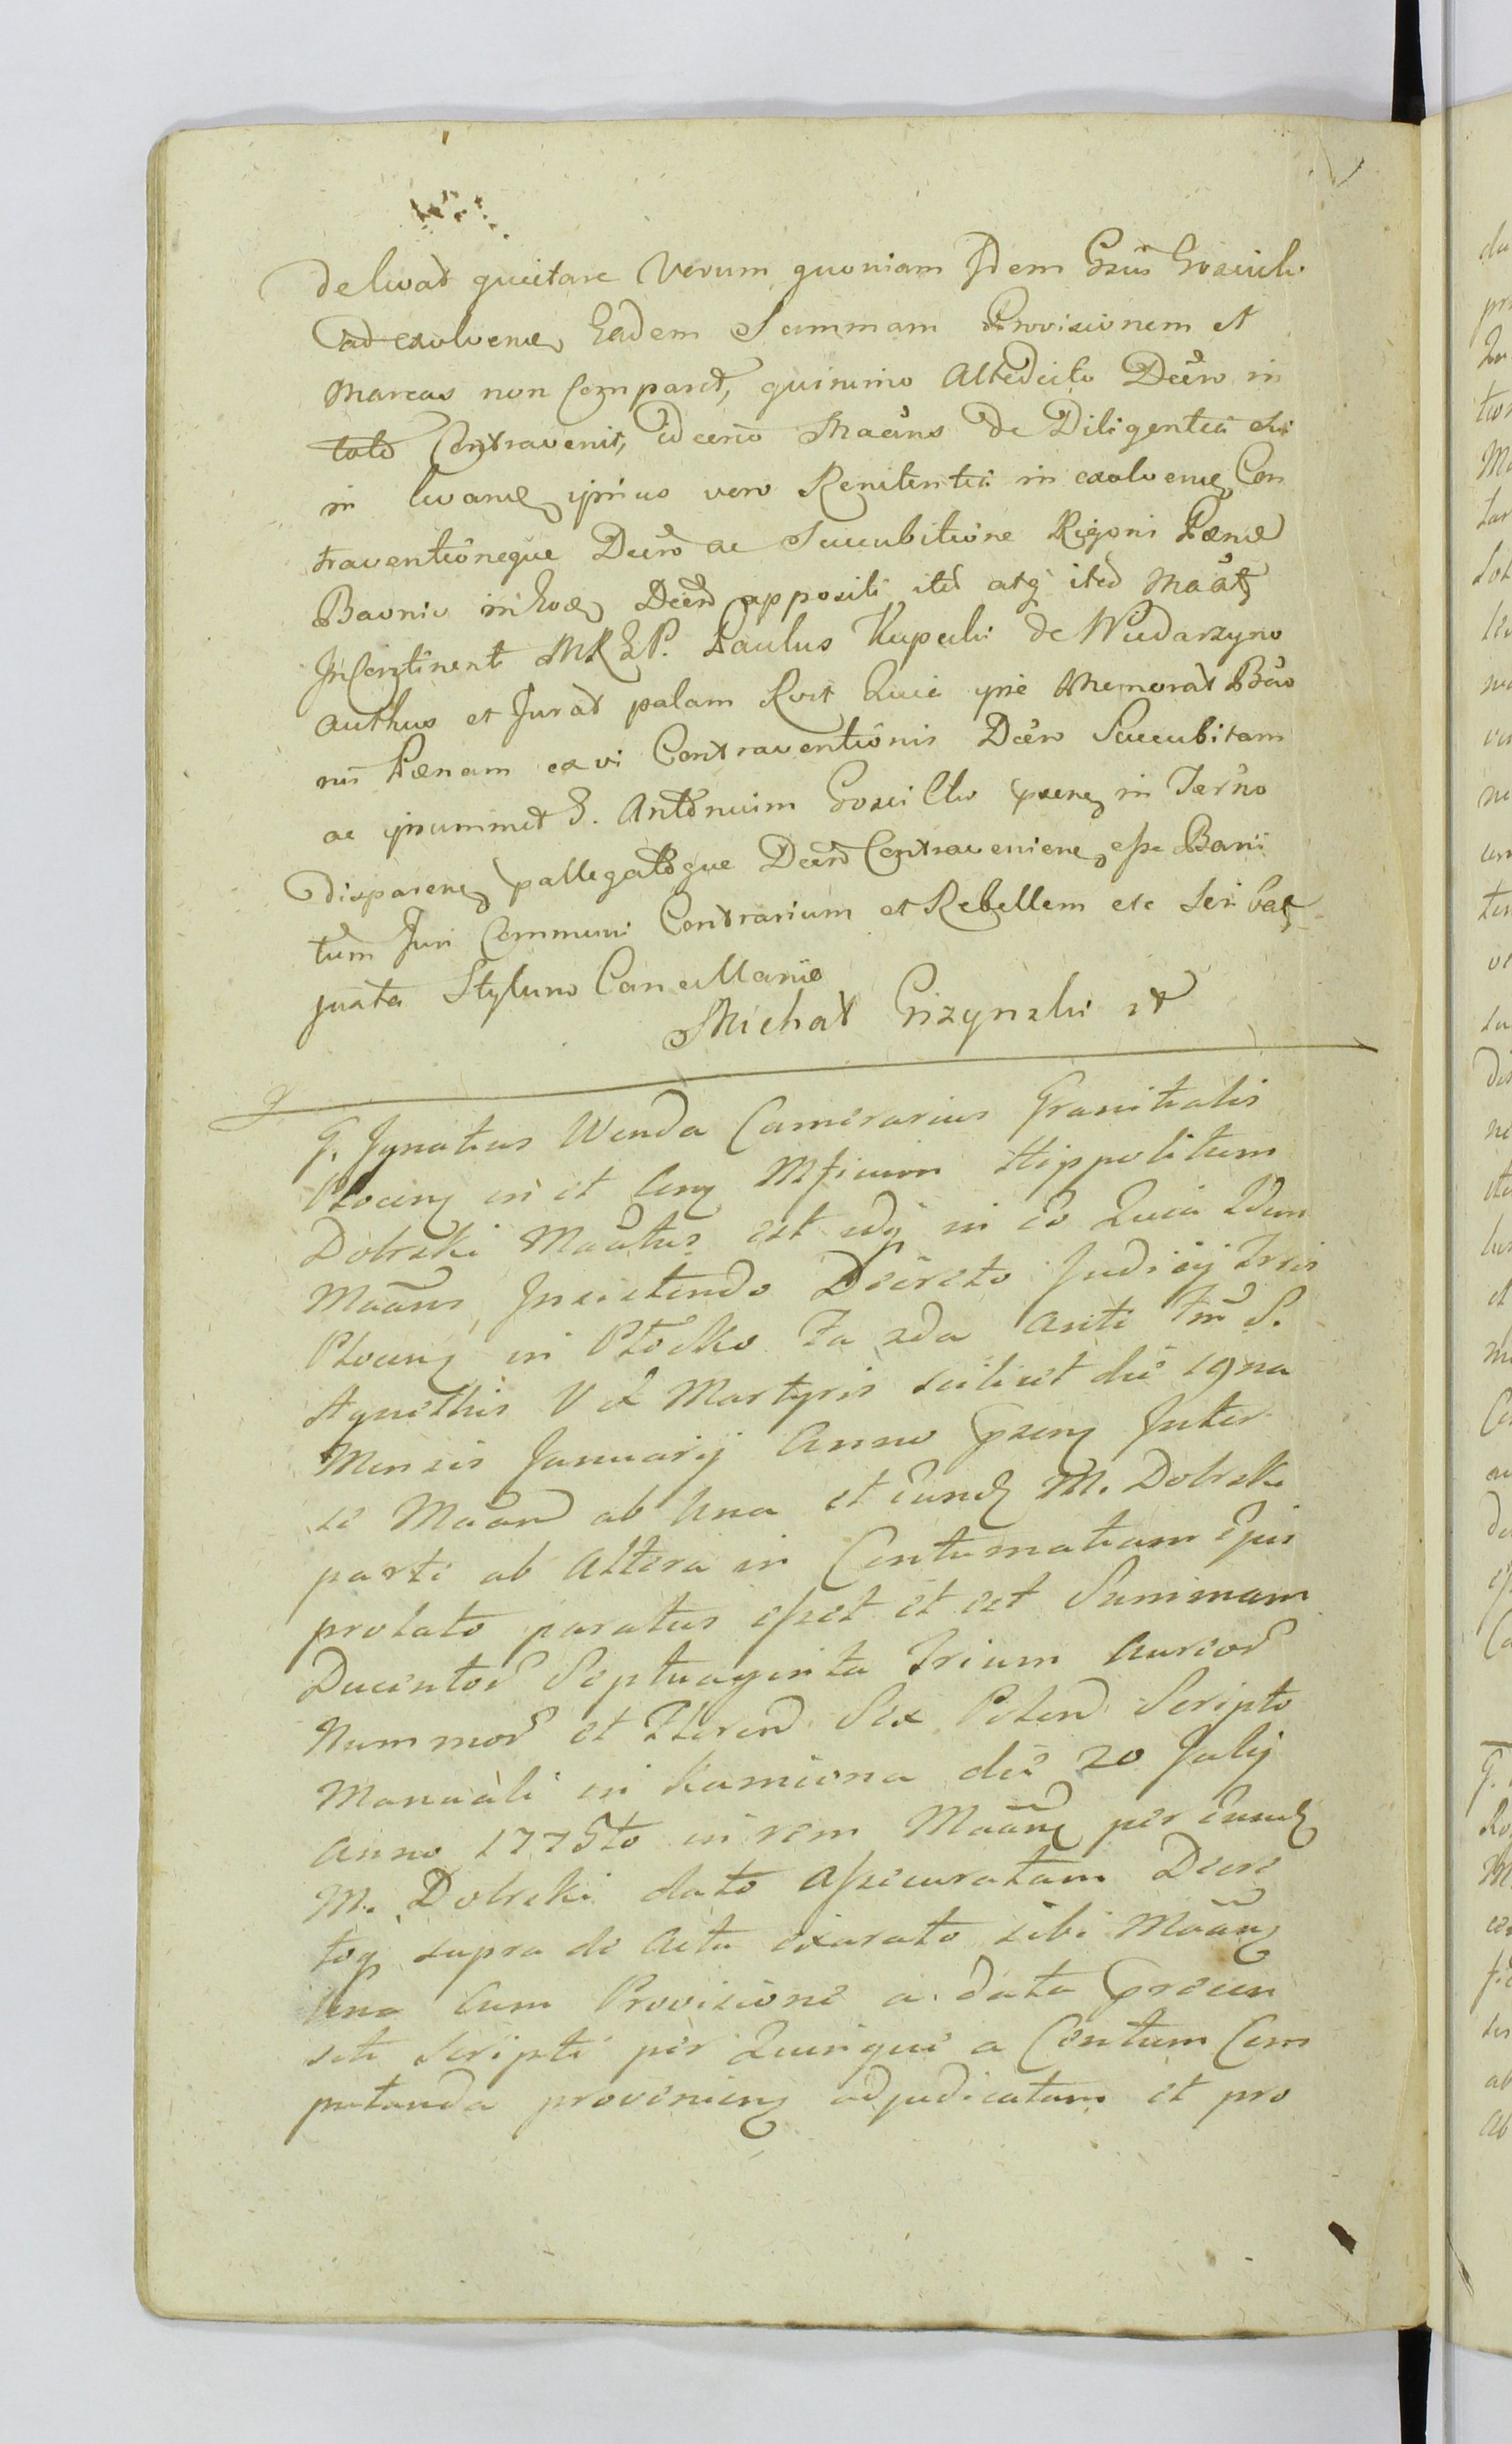 delwat quietare Verum quoniam Idem Gsus Goscicki
ad exolvend Eadem Summam Provisionem et
Marcas non Comparet, quinimo Altedicto Decro in
toto Contravenit, idcirco Maans de Diligentia sui
in levand ipsius vero Renitentia in exolvend Con
traventioneque Decro ac Succubitione Rigori Pænæ
Decro appositi itd atq ited Maat
InContinenti MREP. Paulus Kupecki de Wiedarzyno
authus et Jurat palam Rcit Quia ipse Memorat Ban
nis Pænam ex vi Contraventionis Decro Succubitam
ac ipsummet G. Antonium pnsen in Terno
disparen pallegatoque Decro Contravenien esse Banni
tum Juri Communi Contrarium et Rebellem etc Scribat
juxta Stylum Cancellariæ
Michał Gizynski
G. Ignatius Wenda Camerarius Granitialis
Plocen in et Cong Mficum Hippolitum
Dobrski Maatus est idq in eo Quia Idem
Maans, Insistendo Decreto Judicij Trris
Plocen in Płocko Fa 2da ante Fm S.
Agnethis V et Martyris scilicet die 19na
Mensis Januarij Anno Pnsen Inter
se Maan ab una et eund M. Dobrski
parte ab Altera in Contumatiam Ejus
prolato paratus esset et est Summam
Ducentor Septuaginta Trium Aureor
Nummor et Floren Sex Polon Scripto
Manuali in Kamiona die 20 Julij
Anno 1775to in rem Maand per eund
M. Dobrski dato assecuratam Decre
toq supra de Actu exarato sibi Maang
una Cum Provisione a data Prœcen
seti Scripti per Quinque a Centum Com
putanda provenieng adjudicatam et pro